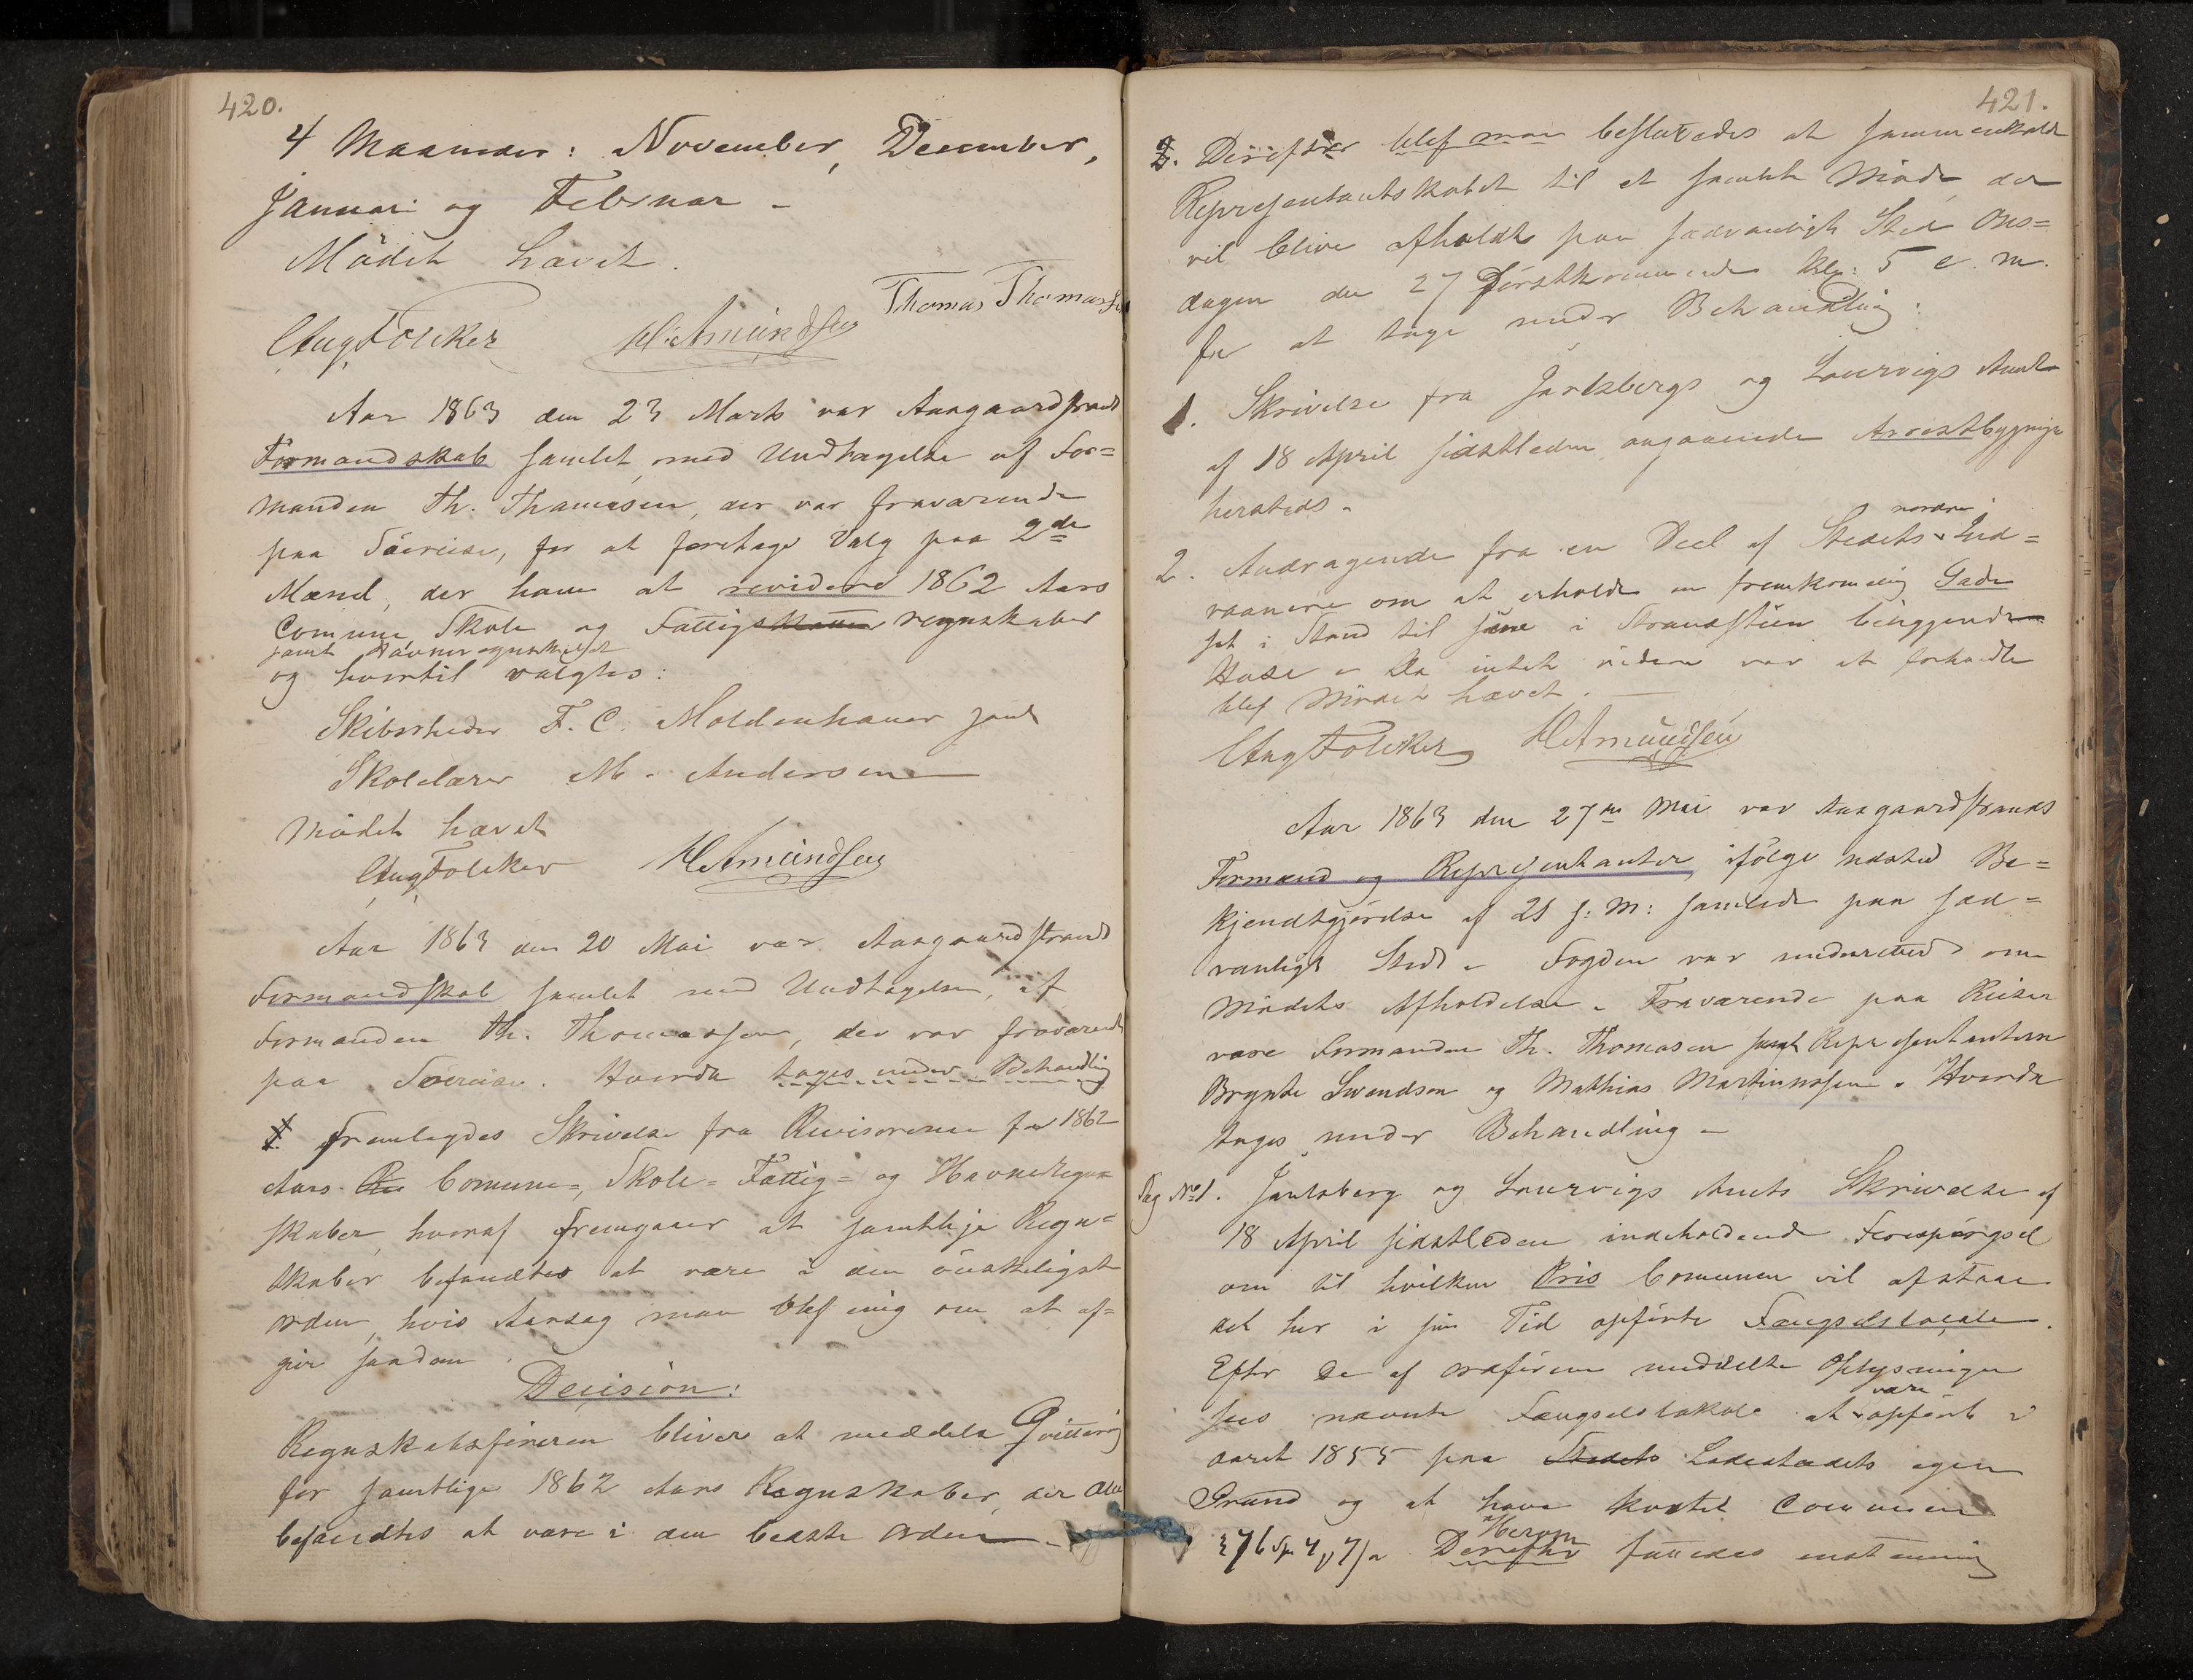 420.
4 Maaneder: November, December,
Januar og Februar –
Mödet hævet.
Thomas Thomassen
Aug Folcker H. Amundsen
Aar 1863 den 23 Marts var Aasgaardstrands
Formandskab samlet, med Undtagelse af For=
manden Th. Thomesen, der var fraværende
paa Söereise, for at foretage Valg paa 2de
Mænd, der have at revidere 1862 Aars
Comune, Skole og Fattig regnskaber
samt Havneregnskabet
og hvortil valgtes:
Skibsrheder F. C. Moldenhauer samt
Skolelærer M. Andersen
Mödet hævet
Aug Folcker H Amundsen
Aar 1863 den 20 Mai var Aasgaardstrands
Formandskab samlet med Undtagelse, af
Formanden Th. Thomassen, der var fraværende
paa Soereise. Hvorda toges under Behandling
1. Fremlagdes Skrivelse fra Revisorerne for 1862
Aars Comune=, Skole= Fattig= og Havneregn=
skaber, hvoraf fremgaaer at samtlige Regn=
skaber befandtes at være i den önskeligste
orden, hvis Aarsag man blef enig om at af=
give saadan
Decision:
Regnskabsföreren bliver at meddele Qvittering
for samtlige 1862 Aars Regnskaber, der alle
befandtes at være i den bedste orden –
421.
2. Derefter blef man besluttedes at sammenkalde
Repræsentantskabet til et samlet Möde der
vil blive afholdt paa sædvanligt Sted Ons=
dagen den 27 förstkommende Kl: 5 e. m.
for at tage under Behandling:
1. Skrivelse fra Jarlsbergs og Laurvigs Amt
af 18 April sidstleden angaaende Arrestbygningen
hersteds.
2. Andragende fra en Deel af Stedets nordre Ind=
vaanere om at erholde en fremkommelig Gade
sat i Stand til söre i Strandstien beliggende
Huse – Da intet videre var at forhandle
blef Mödet hævet. –
Aug Folcker H Amundsen
Aar 1863 den 27de Mai var Aasgaardstrands
Formænd og Repræsentanter, ifölge udsted Be=
kjendtgjörelse af 21 s: M: samlede paa sæd=
vanligt Sted – Fogden var underrettet om
Mödets Afholdelse. Fraværende paa Reiser
vare Formanden Th. Thomesen samt Repræsentanterne
Brynte Svendsen og Mathias Martinussen. Hvorda
toges under Behandling –
Sag No 1. Jarlsberg og Laurvigs Amts Skrivelse af
18 April sidstleden indeholdende Forespörgsel
om til hvilken Pris Comunen vil afstaae
det her i sin Tid opförte Fængselslocale.
Efter de af ordföreren meddelte Oplysninger
sees nævnte Fængselslokale at være opfört i
aaret 1855 paa Stedets Ladestedets egen
Grund og at have kostet Communen
Herom
Derefter fattedes enstemmig